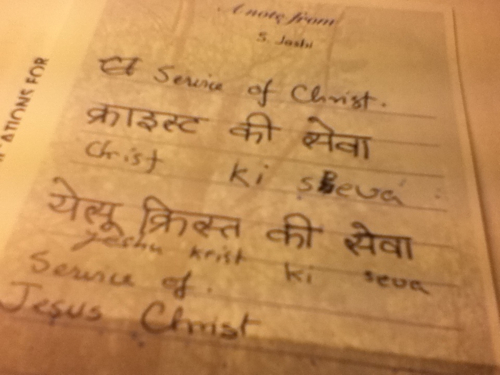 ATIONS FOR
A note from
S. Joshi
Service of Christ.
क्राइस्ट की सेवा
Christ ki seva
येशू क्रिस्त की सेवा
Yeshu krist ki seva
Service of.
Jesus Christ